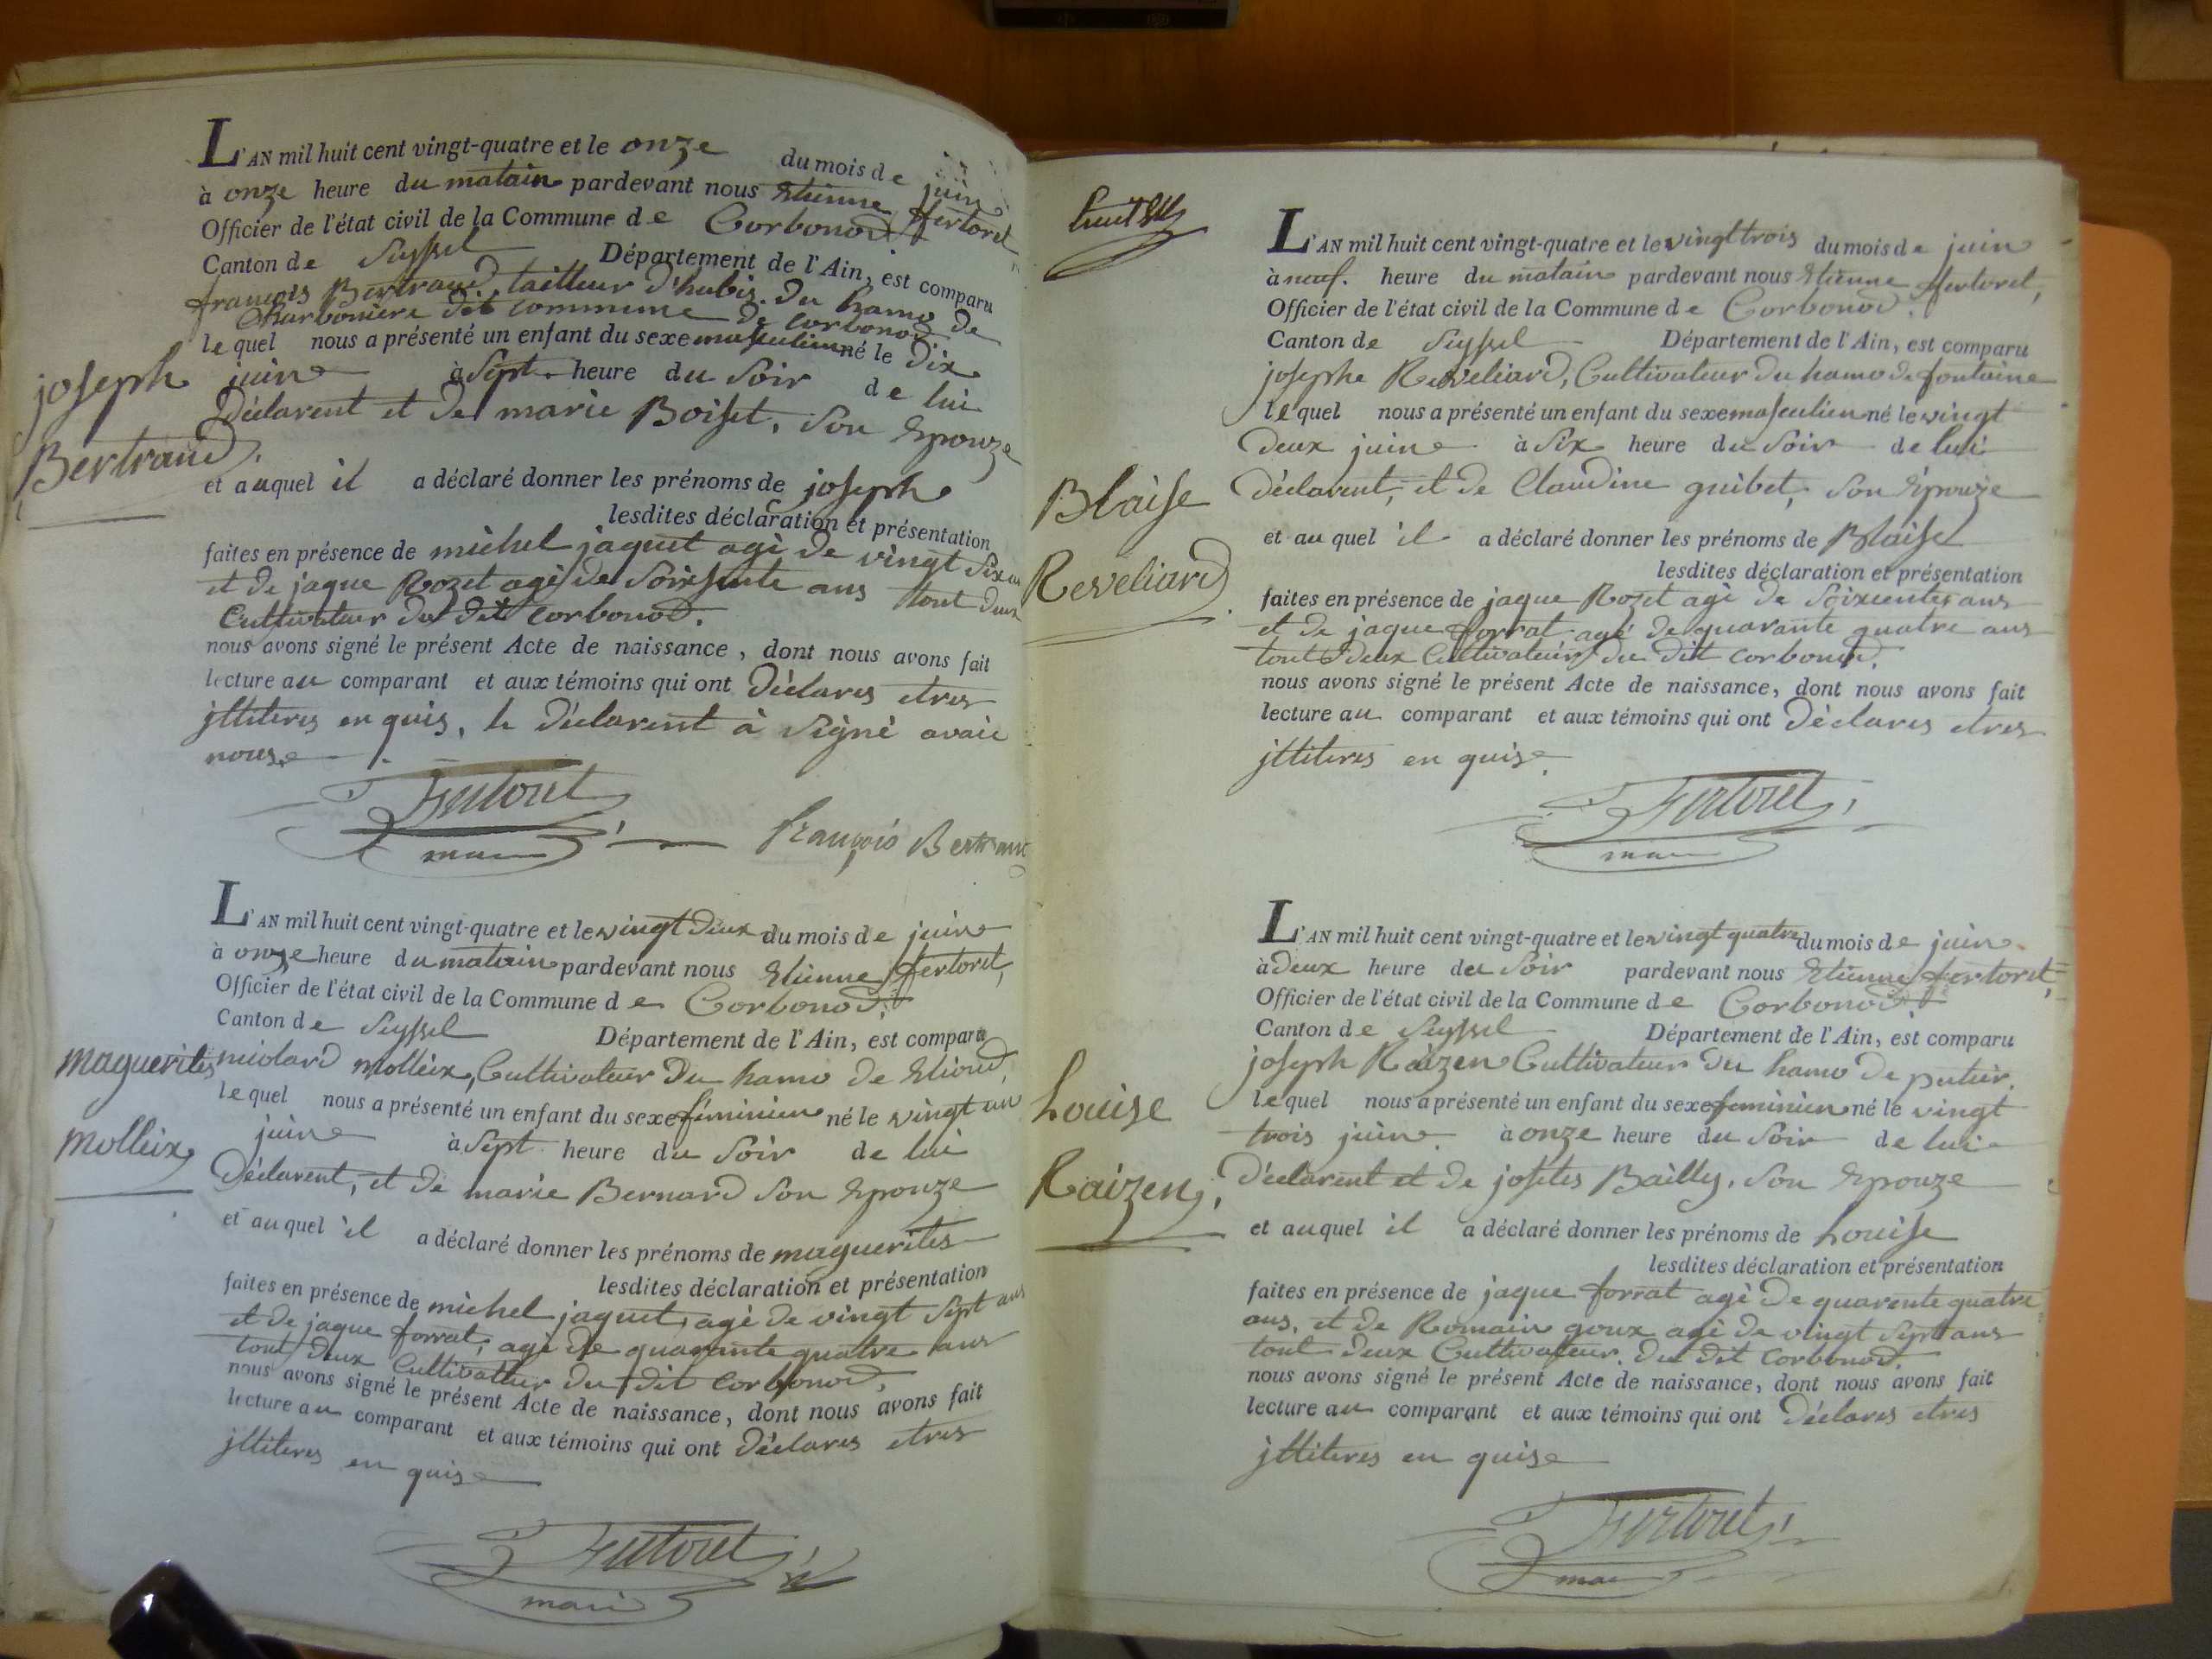 L'AN mil huit cent vingt-quatre et le onze du mois de juin
à onze heure du matain pardevant nous Etienne fertoret
Officier de l'état civil de la Commune de Corbonod
Canton de Seyssel Département de l'Ain, est comparu
françois Bertrand, tailleur d'habis du hamo de
Charboniere dit commune de corbonod
lequel nous a présenté un enfant du sexe masculien né le dix
juin à sept heure du soir de lui
Déclarent et de marie Boisset, son Epouze
et auquel il a déclaré donner les prénoms de joseph
lesdites déclaration et présentation
faites en présence de michel jaquet agé de vingt six
et de jaque Rozet agé de soixsente ans tout deux
Cultivateur du dit corbonod.
nous avons signé le présent Acte de naissance, dont nous avons fait
lecture au comparant et aux témoins qui ont Déclares etres
jlliteres en quis, le Déclarent à signé avaic
nous
joseph
Bertrand
Fertoret
françois Bertrand
L'AN mil huit cent vingt-quatre et le vingt deux du mois de juin
à onze heure du matain pardevant nous Etienne fertoret,
Officier de l'état civil de la Commune de Corbonod
Canton de Seyssel Département de l'Ain, est comparu
molleix, Cultivateur Du hamo de Eliond,
lequel nous a présenté un enfant du sexe féminien né le vingt un
juin à sept heure du soir de lui
Déclarent, et de marie Bernard son Epouze
et auquel il a déclaré donner les prénoms de maguerites
lesdites déclaration et présentation
faites en présence de michel jaquet, agé de vingt sept ans
et de jaque forrat, agé de quarante quatre ans
tout deux Cultivatteur du dit corbonod,
nous avons signé le présent Acte de naissance, dont nous avons fait
lecture au comparant et aux témoins qui ont Déclares etres
jlliteres en quis
maguerites
molleix
Fertoret
L'AN mil huit cent vingt-quatre et le vingt trois du mois de juin
à neuf. heure du matain pardevant nous Etienne fertoret,
Officier de l'état civil de la Commune de Corbonod.
Canton de Seyssel Département de l'Ain, est comparu
josephe Reveliard, Cultivateur du hamo de fontaine
lequel nous a présenté un enfant du sexe masculien né le vingt
deux juin à six heure du soir de lui
Déclarent, et de Claudine guibet, son Epouze
et auquel il a déclaré donner les prénoms de Blaise
lesdites déclaration et présentation
faites en présence de jaque Rozet agé de soixentes ans
et de jaque forrat agé de quarante quatre ans
tout deux Cultivateur du dit corbonod.
nous avons signé le présent Acte de naissance, dont nous avons fait
lecture au comparant et aux témoins qui ont Déclares etres
jlliteres en quis
Blaise
Reveliard
Fertoret
L'AN mil huit cent vingt-quatre et le vingt quatre du mois de juin
à deux heure du soir pardevant nous Etienne fertoret,
Officier de l'état civil de la Commune de Corbonod.
Canton de Seyssel Département de l'Ain, est comparu
joseph Raizen Cultivateur du hamo de putier.
lequel nous a présenté un enfant du sexe feminien né le vingt
trois juin à onze heure du soir de lui
Déclarent et de josetes Bailly, son Epouze
et auquel il a déclaré donner les prénoms de Louise
lesdites déclaration et présentation
faites en présence de jaque forrat agé de quarente quatre
ans, et de Romain goux agé de vingt sept ans
tout deux Cultivateur du dit corbonod.
nous avons signé le présent Acte de naissance, dont nous avons fait
lecture au comparant et aux témoins qui ont Déclares etres
jlliteres en quis
Louise
Raizen
Fertoret